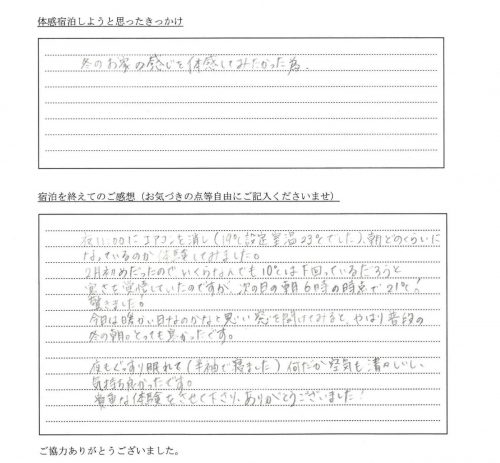 体感宿泊しようと思ったきっかけ
冬のお家の感じを体感してみたかった為。
宿泊を終えてのご感想(お気づきの点等自由にご記入くださいませ)
夜11:00にエアコンを消し(19℃設定室温23℃でした)、朝どのくらいに
なっているのか体験してみました。
2月初めだったのでいくらなんでも10℃は下回っているだろうと
寒さを覚悟していたのですが、次の日の朝6時の時点で21℃!
驚きました。
今日は暖かい日なのかなと思い窓を開けてみると、やはり普段の
冬の朝。とっても寒かったです。
夜もぐっすり眠れて(半袖で寝ました)何だか空気も清々しいし、
気持ち良かったです。
貴重な体験をさせて下さり、ありがとうございました!
ご協力ありがとうございました。